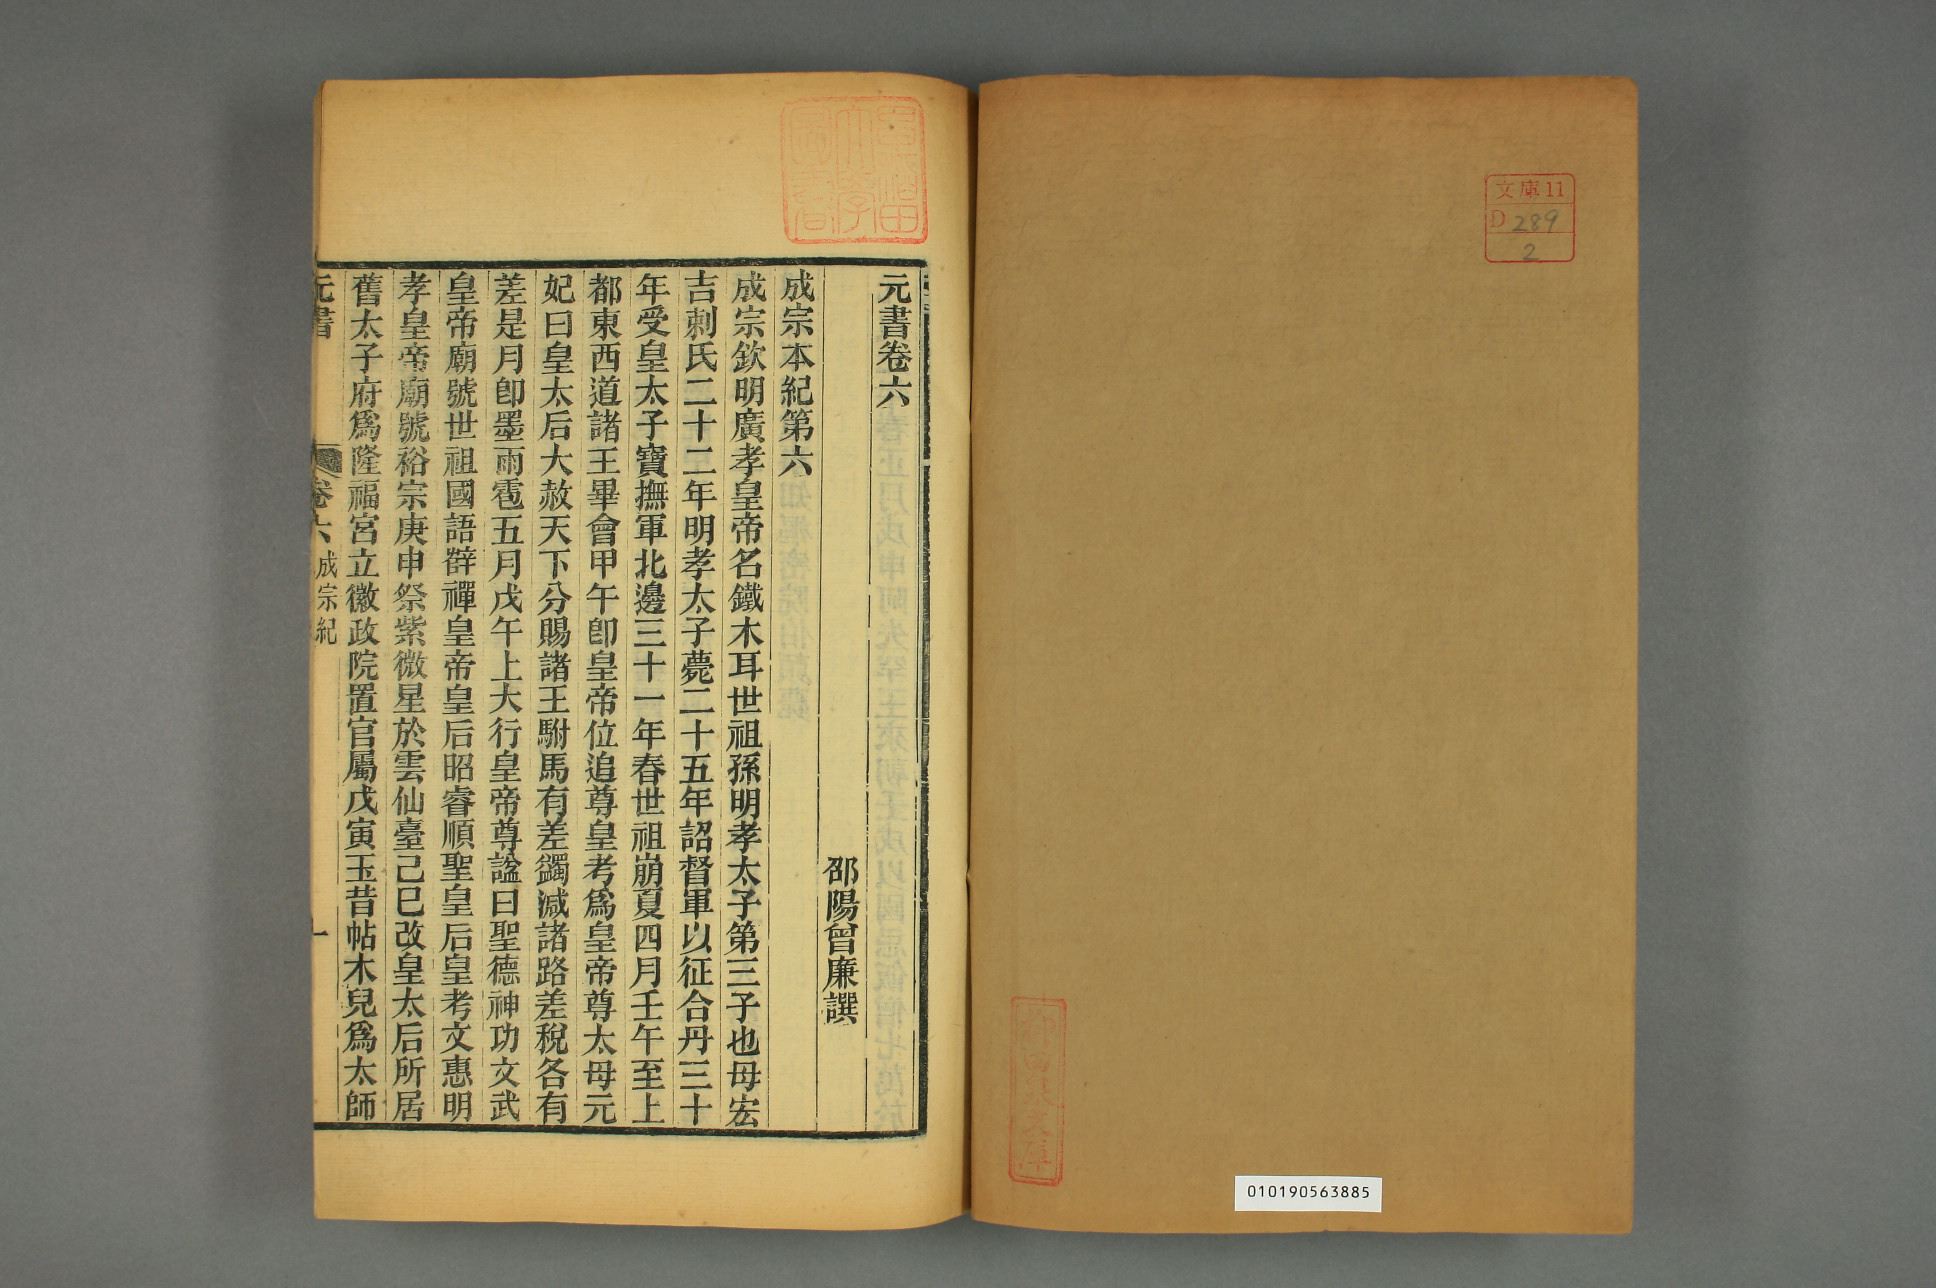 文庫11
D 289
2
010190563885
早稲田大學圖書
元書卷六
邵陽曾廉譔
成宗本紀第六
成宗欽明廣孝皇帝名鐵木耳世祖孫明孝太子第三子也母宏
吉剌氏二十二年明孝太子薨二十五年詔督軍以征合丹三十
年受皇太子寶撫軍北邊三十一年春世祖崩夏四月壬午至上
都東西道諸王畢會甲午卽皇帝位追尊皇考爲皇帝尊太母元
妃曰皇太后大赦天下分賜諸王駙馬有差蠲減諸路差稅各有
差是月卽墨雨雹五月戊午上大行皇帝尊諡曰聖德神功文武
皇帝廟號世祖國語辥禪皇帝皇后昭睿順聖皇后皇考文惠明
孝皇帝廟號裕宗庚申祭紫微星於雲仙臺己巳改皇太后所居
舊太子府爲隆福宮立徽政院置官屬戊寅玉昔帖木兒爲太師
元書
卷六
成宗紀
一